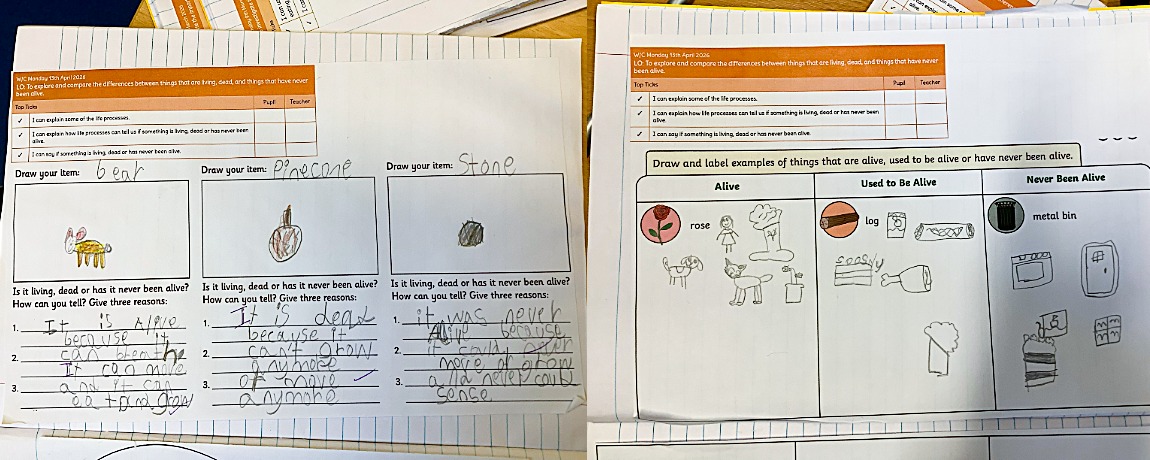 WJC Monday 13th April 2026
LO: To explore and compare the differences between things that are living, dead, and things that have never been alive.
Top Ticks
Pupil
Teacher
✓ I can explain some of the life processes.
✓ I can explain how life processes can tell us if something is living, dead or has never been alive.
✓ I can say if something is living, dead or has never been alive.
Draw your item: bear
Is it living, dead or has it never been alive?
How can you tell? Give three reasons:
1. It is Alive
because it
2. can breathe
It can move
3. and it can
eat and grow
Draw your item: Pinecone
Is it living, dead or has it never been alive?
How can you tell? Give three reasons:
1. It is dead
because it
2. can't grow
anymore
3. or move
anymore
Draw your item: Stone
Is it living, dead or has it never been alive?
How can you tell? Give three reasons:
1. it was never
Alive because
2. it could never
move or grow
3. and never could
sense
WJC Monday 13th April 2026
LO: To explore and compare the differences between things that are living, dead, and things that have never been alive.
Top Ticks
Pupil
Teacher
✓ I can explain some of the life processes.
✓ I can explain how life processes can tell us if something is living, dead or has never been alive.
✓ I can say if something is living, dead or has never been alive.
Draw and label examples of things that are alive, used to be alive or have never been alive.
Alive
Used to Be Alive
Never Been Alive
rose
log
metal bin